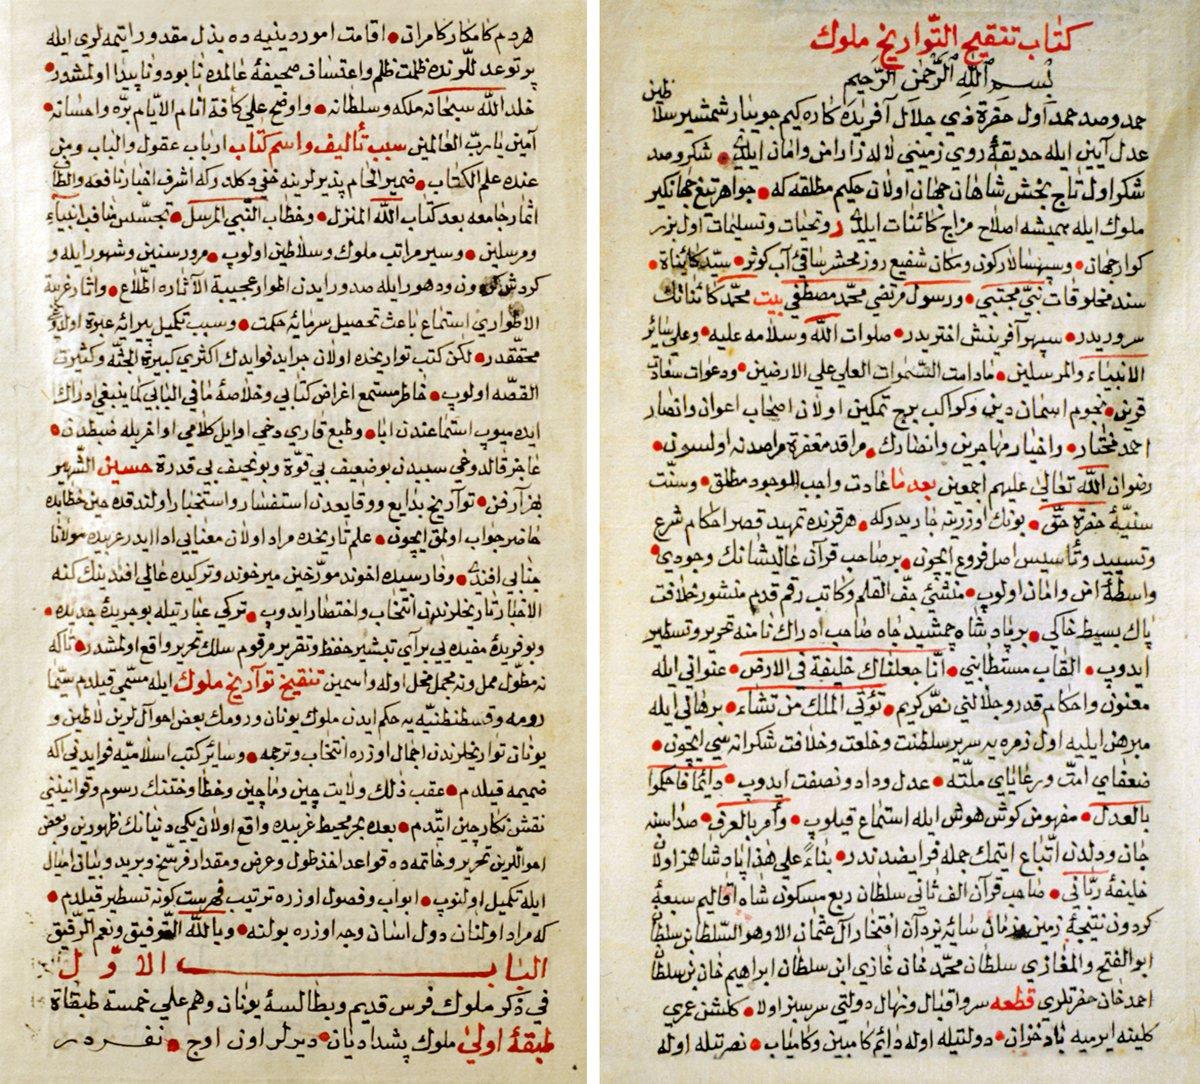 كتاب تنقيح التواريخ ملوك
بسم الله الرحمن الرحيم
حمد وصد حمد اول حضرة ذي جلال آفريده كاره كيم جويبار شمشير سلا
طين
عدل آيين ايله حديقۀ روي زميني لاله زار امن وامان ايلدي • شكر وصد
شكر اول تاج بخش شاهان جهان اولان حكيم مطلقه كه • جواهر تيغ جهانكير
ملوك ايله هميشه اصلاح مزاج كائنات ايلدي و تحيات وتسليمات اول بزر
كوار جهان • وسپهسالار كون ومكان شفيع روز محشر ساقئ آب كوثر • سيد كائناة •
سند مخلوقات نبي مجتبي • ورسول مرتضي محمد مصطفي بيت محمد كائناتك
سروريدر • سپهر آفرينش اختريدر • صلوات الله وسلامه عليه • وعلي سائر
الانبياء والمرسلين • مادامت السموات العلي علي الارضين • ودعوات سعادت
قرين • نجوم اسمان دين وكواكب برج تمكين اولان اصحاب اعوان وانصار
احمد مختار • واخيار مهاجرين وانصارك • مراقد مغفرة مراصدنه اولسون •
رضوان الله تعالي عليهم اجمعين بعد ما عادت واجب الوجود مطلق • وسنت
سنيۀ حضرة حق • بونك اوزرينه جاريدركه • هر قرنده تمهيد قصر احكام شرع
وتسييد وتأسيس اصل فروع ايچون • بر صاحب قرآن عاليشانك وجودي
واسطۀ امن وامان اولوب • منشئ جف القلم وكاتب رقم قدم منشور خلافت
پاك بسيط خاكي • بر پادشاه جمشيد جاه صاحب ادراك نامنه تحرير وتسطير
ايدوب • القاب مستطابني • انا جعلناك خليفة في الارض • عنواني ايله
معنون واحكام قدر وجلالني نص كريم • تؤتي الملك من تشاء • برهاني ايله
مبرهن ايليه اول زمره يه سرير سلطنت وخلعت وخلافت شكرانه سي ايچون •
ضعفاي امت ورعاياي ملته • عدل وداد ونصفت ايدوب • دائما فاحكموا
بالعدل • مفهومن كوش هوش ايله استماع قيلوب • وأمر بالعرف • صداسنه
جان ودلدن اتباع ايتمك جمله فرايضدندر • بناء علي هذا پادشاهز اولان
خليفۀ رباني • صاحب قرآن الف ثاني سلطان ربع مسكون شاه اقاليم سبعۀ
كردون نتيجۀ زمين وزمان سايۀ يزدان افتخار آل عثمان الا وهو السلطان بن سلطان
ابو الفتح والمغازي سلطان محمد خان غازي ابن سلطان ابراهيم خان بن سلطان
احمد خان حضرتلري قطعه سرو اقبال ونهال دولتي سرسبز اولا • كلشن عمري
كلينه ايرميه باد خزان • دولتيله اوله دائم كامبين وكامياب • نصرتيله اوله
هردم كامكار كامران • اقامت امور دينيه ده بذل مقدور ايتمه لري ايله
پرتو عدللرنده ظلمت ظلم واعتساف صحيفۀ عالمده نابود وناپيدا اولمشدر •
خلد الله سبحانه ملكه وسلطانه • واوضح علي كافة انام الايام بره واحسانه •
آمين يا رب العالمين سبب تأليف واسم كتاب ارباب عقول والباب ومن
عنده علم الكتاب • ضمير الهام پذير لرينه خفي دكلدركه اشرف اخبار نافعه والطاف
اثمار جامعه بعد كتاب الله المنزل • وخطاب النبي المرسل • تجسس مناقب انبياء
ومرسلين • وسير مراتب ملوك وسلاطين اولوب • مرور سنين وشهور ايله و
كردش كون ودهور ايله صدور ايدن اطوار عجيبة الآثاره اطلاع • واثار غريبة
الاطواري استماع باعث تحصيل سرمايۀ حكمت • وسبب تكميل پيرايۀ عبرة اولدوغي
محققدر • لكن كتب تواريخده اولان جرايد فوايدك اكثري كبيرة الجثه وكثيرة
القصه اولوب • خاطر مستمع اغراض كتابي وخلاصۀ ما في البابي كما ينبغي ادراك
ايده ميوب استماعندن ابا • وطبع قاري دخي اوايل كلامي اواخريله ضبطدن •
عاجز قالدوغي سببدن بو ضعيف بي قوة وبو نحيف بي قدرة حسين الشهير
بهزارفن • تواريخ بدايع ووقايعدن استفسار واستخبار اولندقده حين خطابده
حاضر جواب اولمق ايچون • علم تاريخده مراد اولان معنايي ادا ايدر عربيده مولانا
جنابي افندي • وفارسيده اخوند مورخين ميرخوند وتركيده عالي افندينك كنه
الاخبار تاريخلرندن انتخاب واختصار ايدوب • تركي عبارتيله بو جريدۀ جديده •
وبو فريدۀ مفيده يي برآي تبشير حفظ وتقرير مرقوم سلك تحرير واقع اولمشدر • تاكه
نه مطول ممل ونه مجمل مخل اوله واسمين تنقيح تواريخ ملوك ايله مسمي قيلدم سيما
رومه وقسطنطنيه يه حكم ايدن ملوك يونان ورومك بعض احوآل لرين لاطين و
يونان تواريخلرندن اجمال اوزره انتخاب وترجمه • وسائر كتب اسلاميه فوايدني اكه
ضميمه قيلدم • عقب ذلك ولايت چين وماچين وخطا وختنك رسوم وقوانيني
نقش نكار چين ايتدم • بعده بحر محيط غربيده واقع اولان يكي دنيانك ظهورين وبعض
احواللرين تحرير وخاتمه ده قواعد اخذ طول وعرض ومقدار فرسخ وبريد وبيان اميال
ايله تكميل اولنوب • ابواب وفصول اوزره ترتيب فهرست كونه تسطير قيلدم •
كه مراد اولنان دول اسان وجه اوزره بولنه • وبالله التوفيق ونعم الرفيق
الباب الاول
في ذكر ملوك فرس قديم وبطالسۀ يونان وهم علي خمسه طبقاة
طبقۀ اولي ملوك پشداديان • ديرلر اون اوج • نفردر